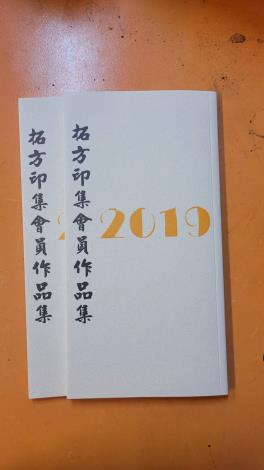 拓方印集會員作品集
拓方印集會員作品集
2019